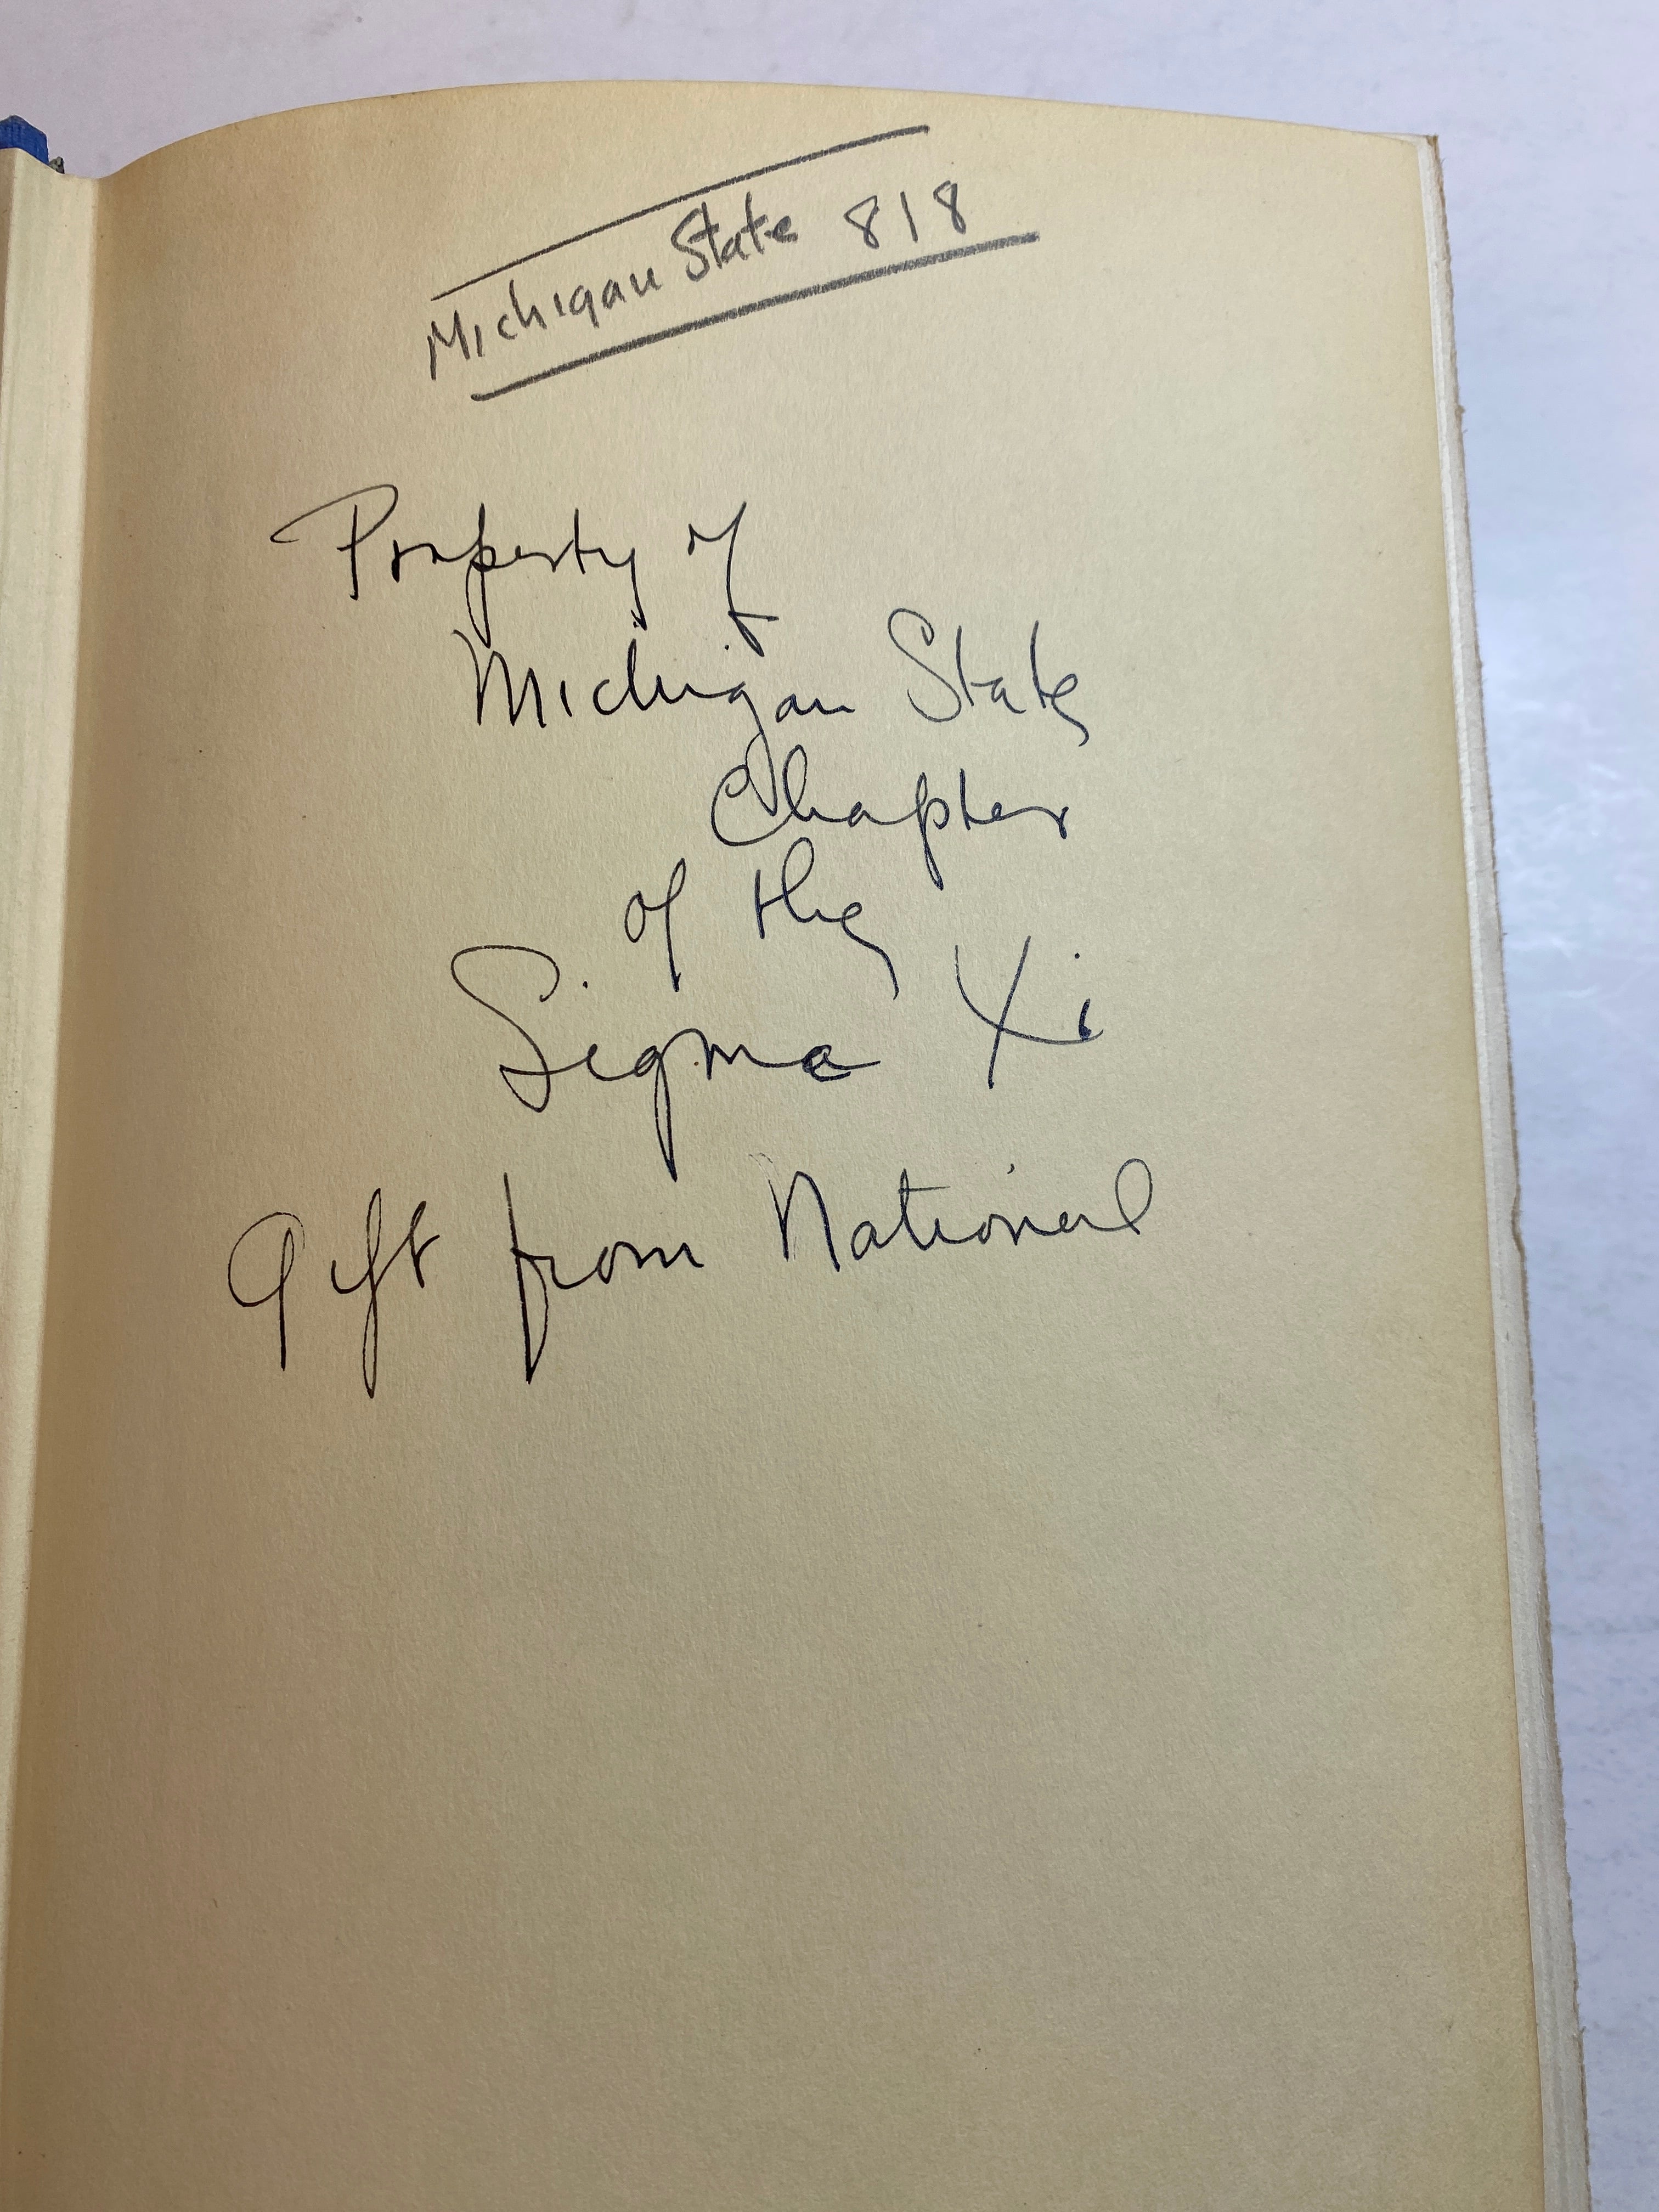 Michigan State 818
Property of
Michigan State
Chapter
of the
Sigma Xi
Gift from National